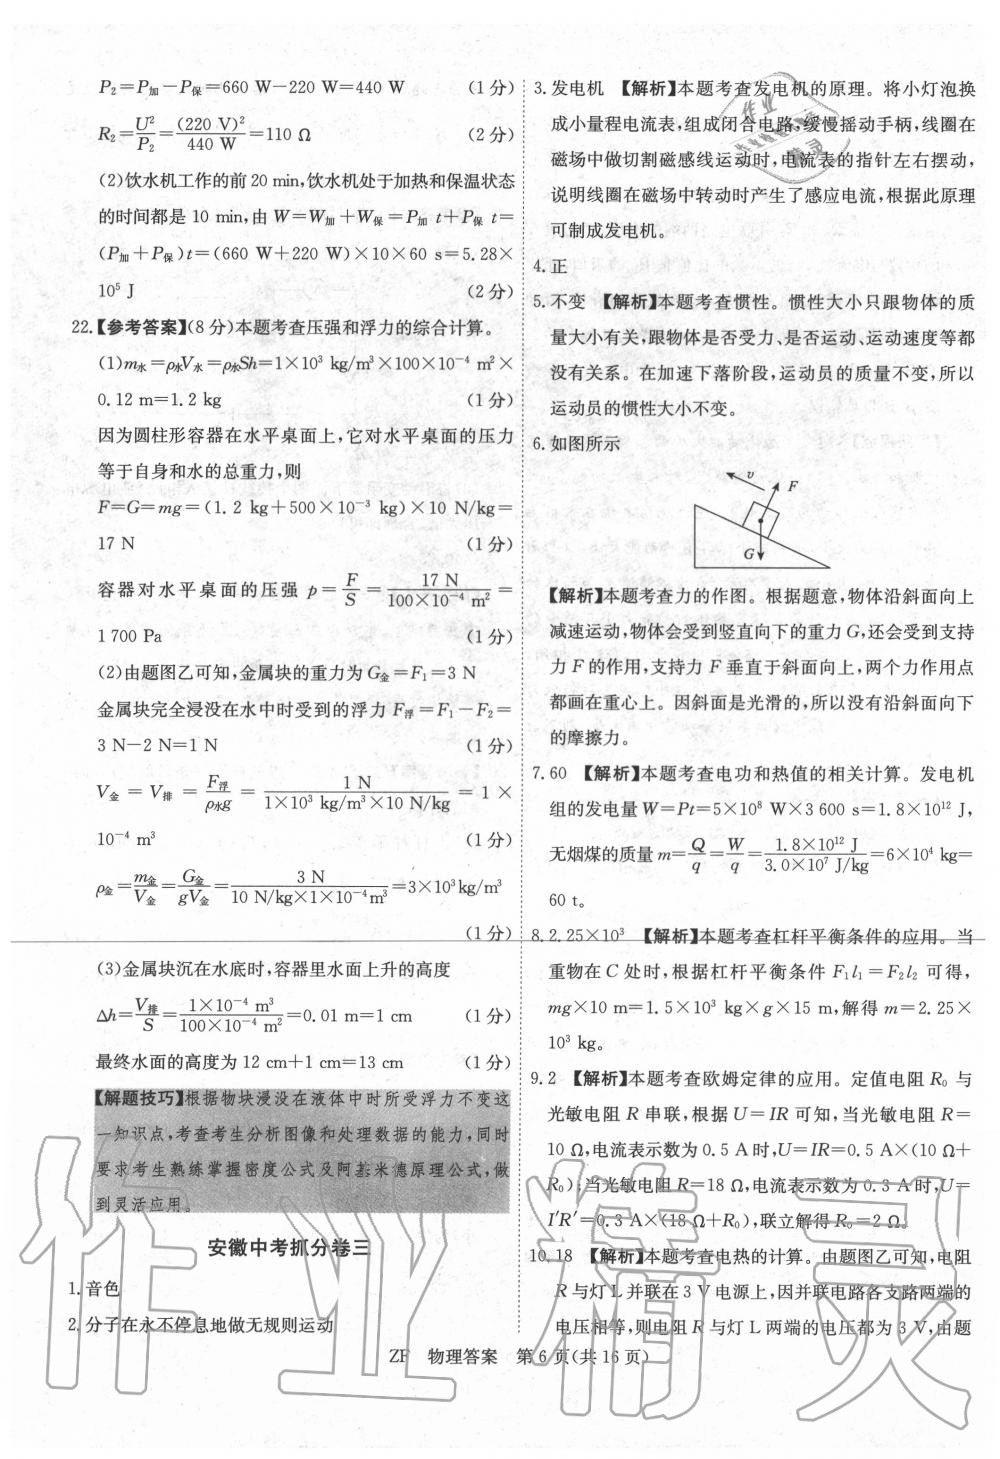 P₂=P加-P保=660 W-220 W=440 W (1分)
R₂=U²/P₂=(220 V)²/440 W=110 Ω (2分)
(2)饮水机工作的前20 min,饮水机处于加热和保温状态
的时间都是 10 min,由 W=W加+W保=P加 t+P保 t=
(P加+P保)t=(660 W+220 W)×10×60 s=5.28×
10⁵ J (2分)
22.【参考答案】(8分)本题考查压强和浮力的综合计算。
(1)m水=ρ水V水=ρ水Sh=1×10³ kg/m³×100×10⁻⁴ m²×
0.12 m=1.2 kg (1分)
因为圆柱形容器在水平桌面上,它对水平桌面的压力
等于自身和水的总重力,则
F=G=mg=(1.2 kg+500×10⁻³ kg)×10 N/kg=
17 N (1分)
容器对水平桌面的压强 p=F/S=17 N/100×10⁻⁴ m²=
1 700 Pa (1分)
(2)由题图乙可知,金属块的重力为G金=F₁=3 N
金属块完全浸没在水中时受到的浮力 F浮=F₁-F₂=
3 N-2 N=1 N (1分)
V金=V排=F浮/ρ水g=1 N/1×10³ kg/m³×10 N/kg=1×
10⁻⁴ m³ (1分)
ρ金=m金/V金=G金/gV金=3 N/10 N/kg×1×10⁻⁴ m³=3×10³ kg/m³
(1分)
(3)金属块沉在水底时,容器里水面上升的高度
Δh=V排/S=1×10⁻⁴ m³/100×10⁻⁴ m²=0.01 m=1 cm (1分)
最终水面的高度为 12 cm+1 cm=13 cm (1分)
【解题技巧】根据物块浸没在液体中时所受浮力不变这
一知识点,考查考生分析图像和处理数据的能力,同时
要求考生熟练掌握密度公式及阿基米德原理公式,做
到灵活应用。
安徽中考抓分卷三
1.音色
2.分子在永不停息地做无规则运动
3.发电机 【解析】本题考查发电机的原理。将小灯泡换
成小量程电流表,组成闭合电路,缓慢摇动手柄,线圈在
磁场中做切割磁感线运动时,电流表的指针左右摆动,
说明线圈在磁场中转动时产生了感应电流,根据此原理
可制成发电机。
4.正
5.不变 【解析】本题考查惯性。惯性大小只跟物体的质
量大小有关,跟物体是否受力、是否运动、运动速度等都
没有关系。在加速下落阶段,运动员的质量不变,所以
运动员的惯性大小不变。
6.如图所示
v
F
G
【解析】本题考查力的作图。根据题意,物体沿斜面向上
减速运动,物体会受到竖直向下的重力 G,还会受到支持
力 F 的作用,支持力 F 垂直于斜面向上,两个力作用点
都画在重心上。因斜面是光滑的,所以没有沿斜面向下
的摩擦力。
7.60 【解析】本题考查电功和热值的相关计算。发电机
组的发电量 W=Pt=5×10⁸ W×3 600 s=1.8×10¹² J,
无烟煤的质量 m=Q/q=W/q=1.8×10¹² J/3.0×10⁷ J/kg=6×10⁴ kg=
60 t。
8.2.25×10³ 【解析】本题考查杠杆平衡条件的应用。当
重物在 C 处时,根据杠杆平衡条件 F₁l₁=F₂l₂ 可得,
mg×10 m=1.5×10³ kg×g×15 m,解得 m=2.25×
10³ kg。
9.2 【解析】本题考查欧姆定律的应用。定值电阻 R₀ 与
光敏电阻 R 串联,根据 U=IR 可知,当光敏电阻 R=
10 Ω,电流表示数为 0.5 A时,U=IR=0.5 A×(10 Ω+
R₀);当光敏电阻 R=18 Ω,电流表示数为 0.3 A时,U=
I′R′=0.3 A×(18 Ω+R₀),联立解得 R₀=2 Ω。
10.18 【解析】本题考查电热的计算。由题图乙可知,电阻
R 与灯 L 并联在3 V 电源上,因并联电路各支路两端的
电压相等,则电阻 R 与灯 L 两端的电压都为 3 V,由题
ZF 物理答案 第 6 页(共 16 页)
作业精灵